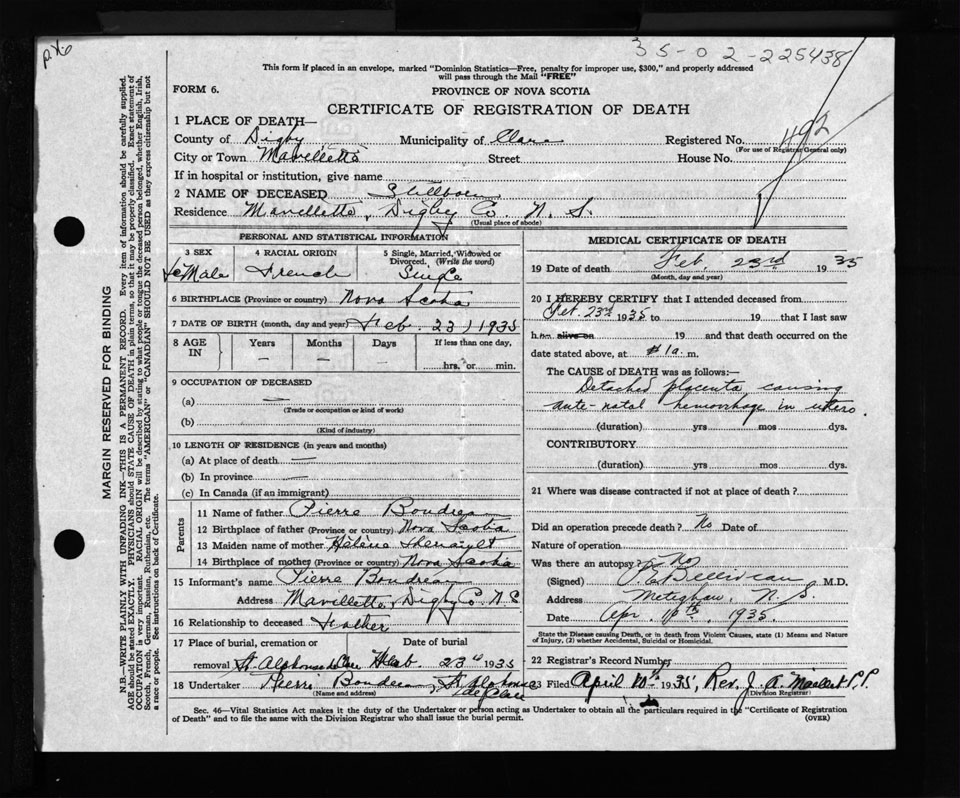 35-02-225438
This form if placed in an envelope, marked "Dominion Statistics—Free, penalty for improper use, $300," and properly addressed
will pass through the Mail "FREE"
FORM 6.
PROVINCE OF NOVA SCOTIA
CERTIFICATE OF REGISTRATION OF DEATH
1 PLACE OF DEATH—
County of Digby Municipality of Clare Registered No. 492
(For use of Registrar General only)
City or Town Mavillette Street House No.
If in hospital or institution, give name
2 NAME OF DECEASED Stillborn
Residence Mavillette, Digby Co. N. S.
(Usual place of abode)
PERSONAL AND STATISTICAL INFORMATION
3 SEX
feMale
4 RACIAL ORIGIN
French
5 Single, Married, Widowed or
Divorced. (Write the word)
Single
6 BIRTHPLACE (Province or country) Nova Scotia
7 DATE OF BIRTH (month, day and year) Feb. 23, 1935
8 AGE IN
Years
—
Months
—
Days
—
If less than one day,
hrs. or min.
9 OCCUPATION OF DECEASED
(a) —
(Trade or occupation or kind of work)
(b)
(Kind of industry)
10 LENGTH OF RESIDENCE (in years and months)
(a) At place of death —
(b) In province —
(c) In Canada (if an immigrant)
Parents
11 Name of father Pierre Boudreau
12 Birthplace of father (Province or country) Nova Scotia
13 Maiden name of mother Hélène
14 Birthplace of mother (Province or country) Nova Scotia
15 Informant's name Pierre Boudreau
Address Mavillette, Digby Co. N S
16 Relationship to deceased Father
17 Place of burial, cremation or Date of burial
removal St. Alphonse de Clare Feb. 23rd 1935
18 Undertaker Pierre Boudreau, St Alphonse
de Clare
(Name and address)
MEDICAL CERTIFICATE OF DEATH
19 Date of death Feb. 23rd 1935
(Month, day and year)
20 I HEREBY CERTIFY that I attended deceased from
Feb. 23rd 1935 to 19 that I last saw
h alive on 19 and that death occurred on the
date stated above, at 1 a. m.
The CAUSE of DEATH was as follows:—
Detached placenta causing
ante-natal hemorrhage in utero.
(duration) yrs mos dys.
CONTRIBUTORY
(duration) yrs mos dys.
21 Where was disease contracted if not at place of death?
Did an operation precede death? No Date of
Nature of operation
Was there an autopsy? No
(Signed) Belliveau M.D.
Address Meteghan, N. S.
Date Apr. 1935.
State the Disease causing Death, or in death from Violent Causes, state (1) Means and Nature
of Injury, (2) whether Accidental, Suicidal or Homicidal.
22 Registrar's Record Number
23 Filed April 10th 1935, Rev. J. A. Maillet P.P.
(Division Registrar)
Sec. 46—Vital Statistics Act makes it the duty of the Undertaker or person acting as Undertaker to obtain all the particulars required in the "Certificate of Registration
of Death" and to file the same with the Division Registrar who shall issue the burial permit.
(OVER)
MARGIN RESERVED FOR BINDING
N.B.—WRITE PLAINLY WITH UNFADING INK—THIS IS A PERMANENT RECORD. Every item of information should be carefully supplied.
AGE should be stated EXACTLY. PHYSICIANS should STATE CAUSE OF DEATH in plain terms, so that it may be properly classified. Exact statement of
OCCUPATION is very important. RACIAL ORIGIN will be described by stating to what people or tongue the deceased person belonged, whether English, Irish,
Scotch, French, German, Russian, Ruthenian, etc. The terms "AMERICAN" or "CANADIAN" SHOULD NOT BE USED as they express citizenship but not
a race or people. See instructions on back of Certificate.